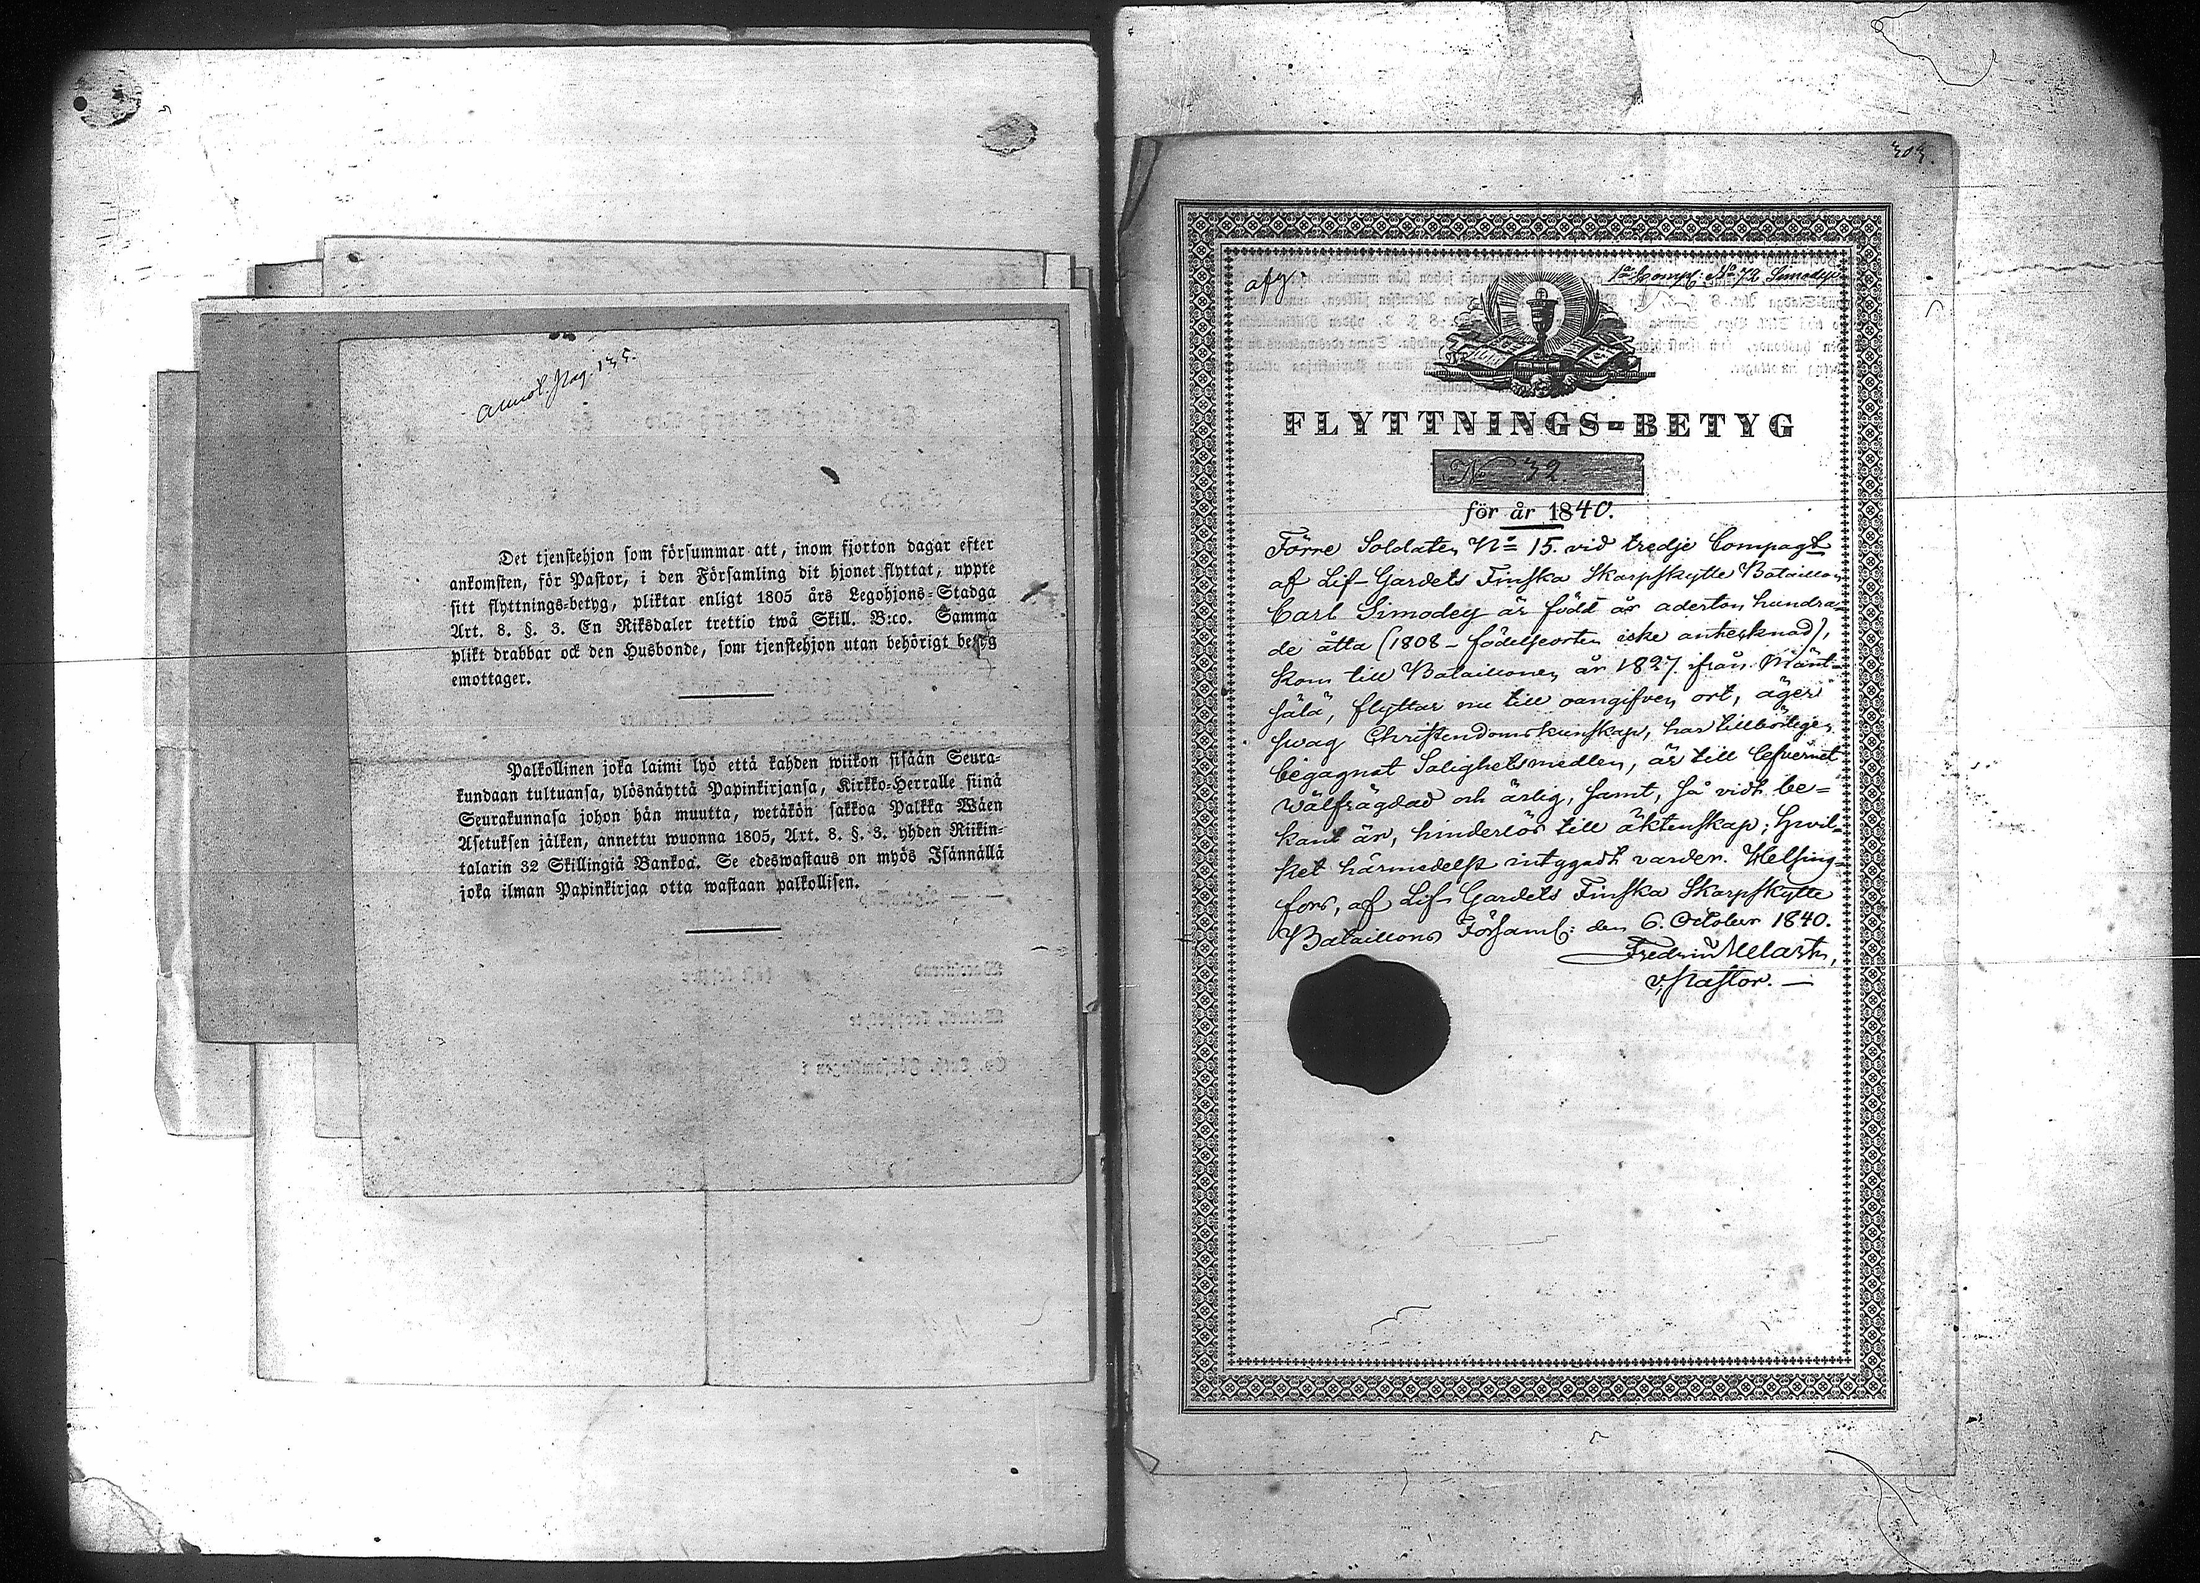 annot. pag. 135.
Det tjenstehjon som försummar att, inom fjorton dagar efter
ankomsten, för Pastor, i den Församling dit hjonet flyttat, uppte
sitt flyttnings-betyg, pliktar enligt 1805 års Legohjons-Stadga
Art. 8. §. 3. En Riksdaler trettio twå Skill. B:co. Samma
plikt drabbar ock den Husbonde, som tjenstehjon utan behörigt betyg
emottager.
Palkollinen joka laimi lyö että kahden wiikon sisään Seura-
kundaan tultuansa, ylösnäyttä Papinkirjansa, Kirkko-Herralle siinä
Seurakunnasa johon hän muutta, wetäkön sakkoa Palkka Wäen
Asetuksen jälken, annettu wuonna 1805, Art. 8. §. 3. yhden Riikin-
talarin 32 Skillingiä Bankoa. Se edeswastaus on myös Isännällä
joka ilman Papinkirjaa otta wastaan palkollisen.
303.
afg.
1a Comp: No 72 Simodej
FLYTTNINGS-BETYG
No 32
för år 1840.
Förre Soldaten No 15. vid tredje Compagt
af Lif-Gardets Finska Skarpskytte Bataillon
Carl Simodej är född år aderton hundra-
de åtta (1808 - födelseorten icke anteknad),
kom till Bataillonen år 1827. ifrån Mänt-
sälä, flyttar nu till oangifven ort, äger
swag Christendomskunskap, har tillbörligen
begagnat Salighetsmedlen, är till Lefvernet
wälfrägdad och ärlig, samt, så vidt be=
kant är, hinderlös till äktenskap; hwil-
ket härmedelst intygadt varder. Helsing-
fors, af Lif-Gardets Finska Skarpskytte
Bataillons Församl: den 6. October 1840.
Fredrin Melart,
v. Pastor. —